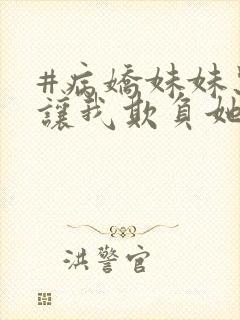 #病嬌妹妹
讓我欺負她
洪警官